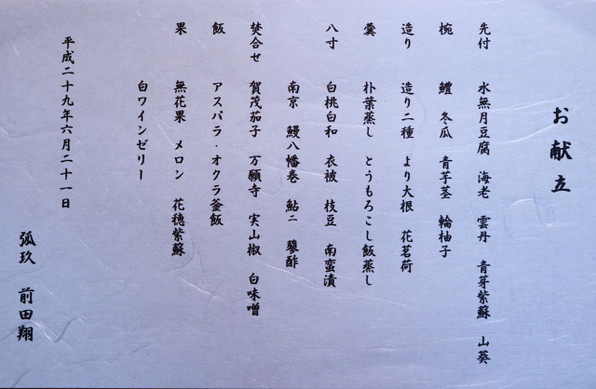 お献立
先付 水無月豆腐 海老 雲丹 青芽紫蘇 山葵
椀 鱧 冬瓜 青芋茎 輪柚子
造り 造り二種 より大根 花茗荷
羹 朴葉蒸し とうもろこし飯蒸し
八寸 白桃白和 衣被 枝豆 南蛮漬
南京 鰻八幡巻 鮎ニ 蓼酢
焚合せ 賀茂茄子 万願寺 実山椒 白味噌
飯 アスパラ・オクラ釜飯
果 無花果 メロン 花穂紫蘇
白ワインゼリー
平成二十九年六月二十一日
弧玖 前田翔